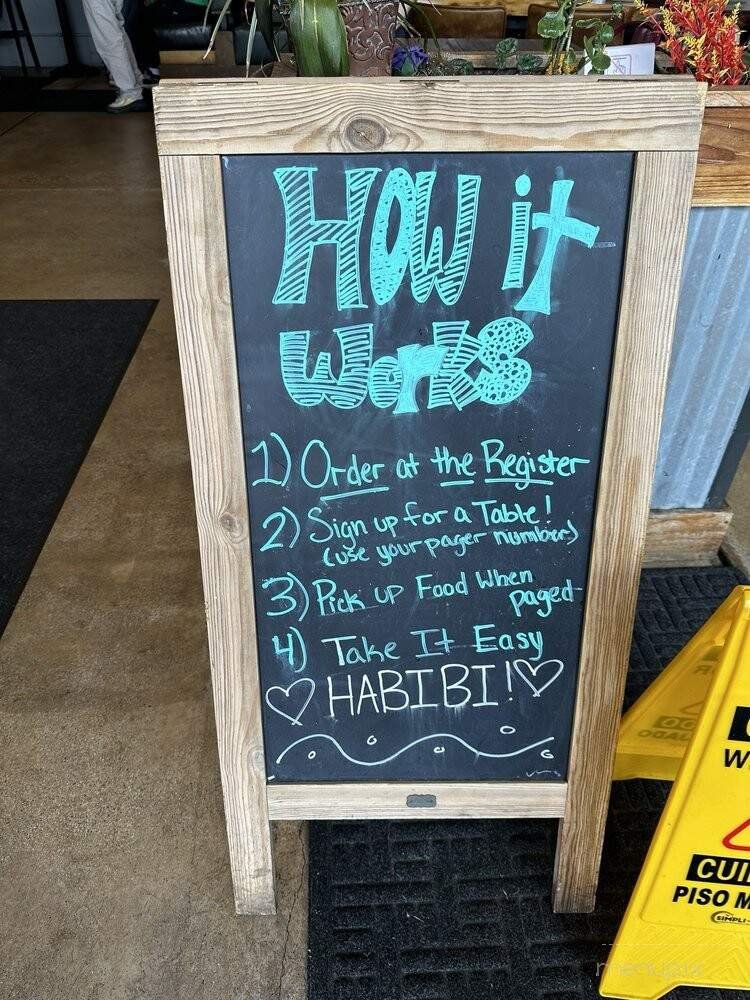 How it
Works
1) Order at the Register
2) Sign up for a Table!
(use your pager number)
3) Pick up Food When
paged
4) Take It Easy
♡ HABIBI! ♡
CUI
PISO M
SIMPLI
menupix